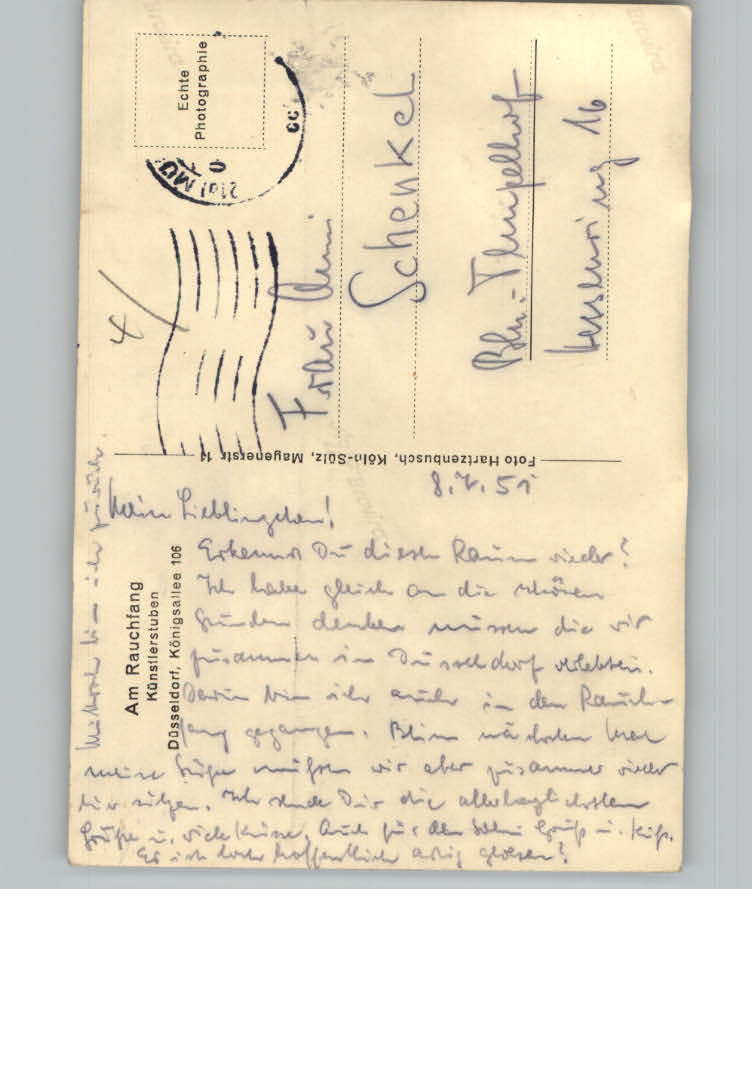 Echte
Photographie
Frau Anni
Schenkel
Bln.-Tempelhof
16
Foto Hartzenbusch, Köln-Sülz, Mayenerstr. 11
Am Rauchfang
Künstlerstuben
Düsseldorf, Königsallee 106
51
Mein Lieblingchen!
Erkennst Du diesen Raum wieder?
Ich habe gleich an die schönen
Stunden denken müssen die wir
zusammen in Düsseldorf verlebten.
Darum bin ich auch in den Rauch-
fang gegangen. Beim nächsten Mal
meine Süße müssen wir aber zusammen wieder
hier sitzen. Ich sende Dir die allerherzlichsten
Grüße u. viele Küsse. Auch für den Gruß u. Kuß.
Er ist doch hoffentlich artig gewesen?
Mittwoch bin ich zurück.